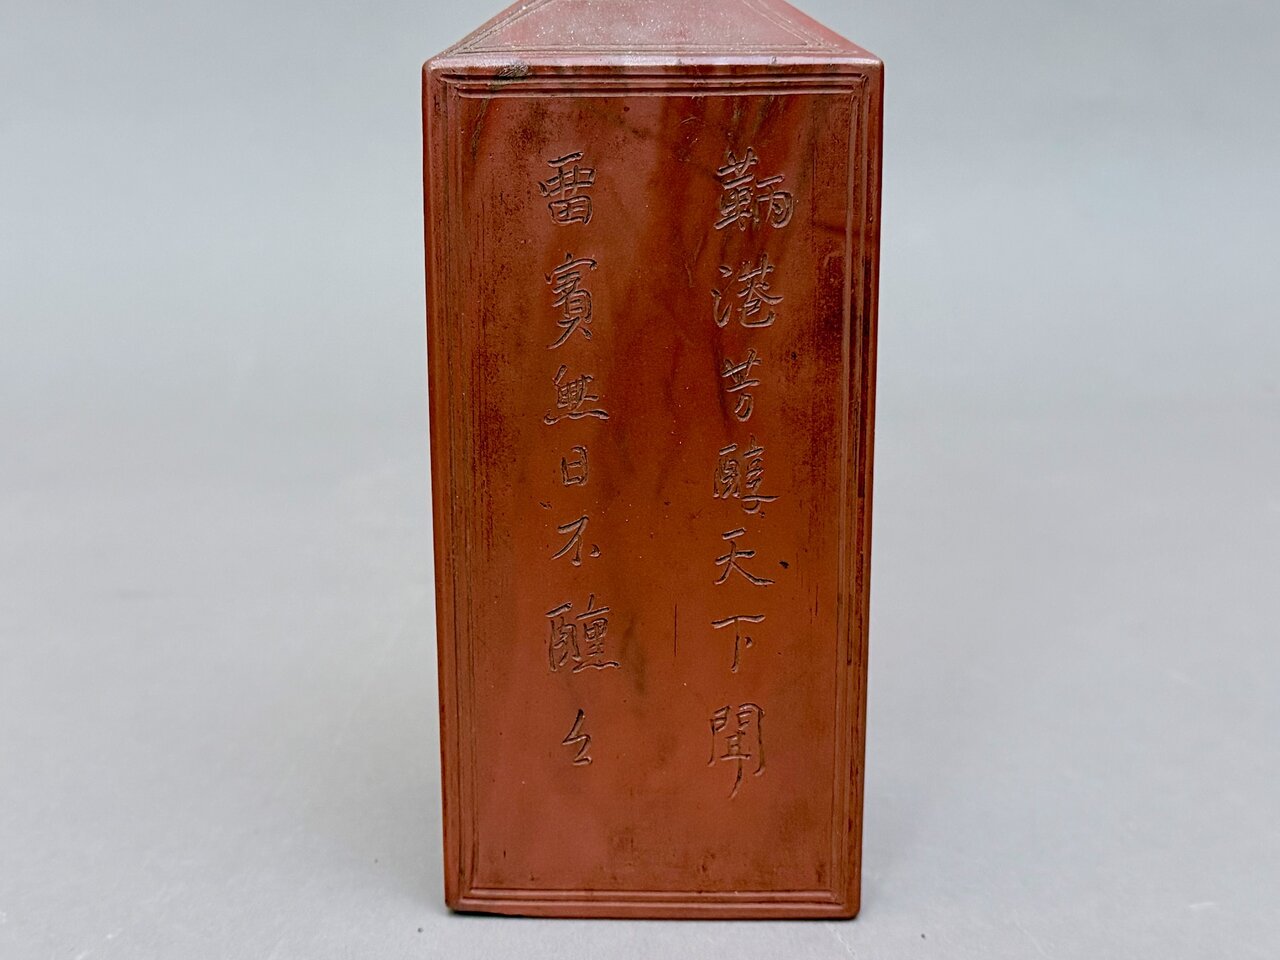 鞆港芳醇天下聞
畱賓無日不醺々